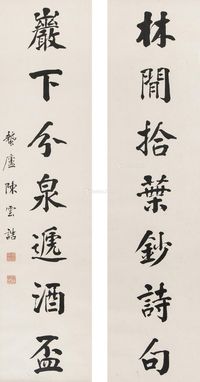 林間拾葉鈔詩句
巖下分泉遞酒盃
陳雲誥